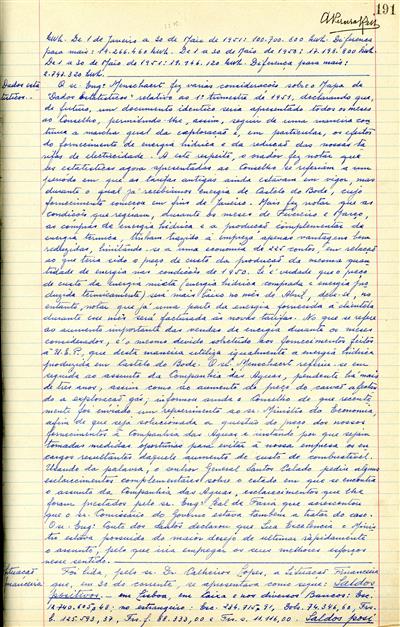 191
kwh. De 1 de Janeiro a 30 de Maio de 1951: 100.700.600 kwh. Diferença
para mais: 19.266.460 kwh. De 1 a 30 de Maio de 1950: 17.198.800 kwh.
De 1 a 30 de Maio de 1951: 19.946.120 kwh. Diferença para mais:
2.747.320 kwh.
Dados esta-
tísticos.
O sr. Engº Menschaert fez várias considerações sobre o Mapa de
"Dados Estatísticos" relativo ao 1º trimestre de 1951, declarando que,
de futuro, um documento idêntico será apresentado todos os meses
ao Conselho, permitindo-lhe, assim, seguir de uma maneira con-
tínua a marcha geral da exploração e, em particular, os efeitos
do fornecimento de energia hídrica e da redução das nossas ta-
rifas de electricidade. A este respeito, o orador fez notar que
as estatísticas agora apresentadas ao Conselho se referiam a um
período em que as tarifas antigas ainda estavam em vigor, mas
durante o qual já recebíamos energia de Castelo do Bode, cujo
fornecimento começou em fins de Janeiro. Mais fez notar que as
condições que regeram, durante os meses de Fevereiro e Março,
as compras de energia hídrica e a produção complementar de
energia térmica, tinham trazido à empresa apenas vantagens bem
reduzidas, limitando-se a uma economia de contos, em relação
ao que teria sido o preço de custo da produção da mesma quan-
tidade de energia nas condições de 1950. Se é verdade que o preço
de custo da energia mista (energia hídrica comprada e energia pro-
duzida termicamente) será mais baixo no mês de Abril, deve-se, no
entanto, notar que já uma parte da energia fornecida à clientela
durante esse mês será facturada às novas tarifas. No que se refere
ao aumento importante das vendas de energia durante os meses
considerados, é o mesmo devido sobretudo aos fornecimentos feitos
à U.E.P., que desta maneira utiliza igualmente a energia hídrica
produzida em Castelo do Bode. O sr. Menschaert referiu-se em
seguida ao assunto da Companhia das Águas, pendente há mais
de três anos, assim como ao aumento do preço do carvão afectan-
do a exploração gás; informou ainda o Conselho de que recente-
mente foi enviado um requerimento ao sr. Ministro da Economia,
afim de que seja solucionada a questão do preço dos nossos
fornecimentos à Companhia das Águas e instando por que sejam
tomadas medidas oportunas para evitar à nossa empresa os en-
cargos resultantes daquele aumento de custo do combustível.
Usando da palavra, o senhor General Santos Calado pediu alguns
esclarecimentos complementares sobre o estado em que se encontra
o assunto da Companhia das Águas, esclarecimentos que lhe
foram prestados pelo sr. Engº Leal de Faria que acrescentou
que o sr. Comissário do Governo estava também a tratar do caso.
O sr. Engº Couto dos Santos declarou que Sua Excelência o Minis-
tro estava possuído do maior desejo de ultimar rapidamente
o assunto, pelo que iria empregar os seus melhores esforços
nesse sentido.
Situação
financeira.
Foi lida, pelo sr. Dr. Calheiros Lopes, a Situação Financeira
que, em 30 do corrente, se apresentava como segue: Saldos
Positivos - em Lisboa, em Caixa e nos diversos Bancos: Esc.
12.740.605,48; no estrangeiro: Esc. 236.715,71, Dols. 74.346,60, Frs.
b. 125.593,37, Frs. f. 88.333,00 e Frs. s. 11.116,00. Saldos posi-